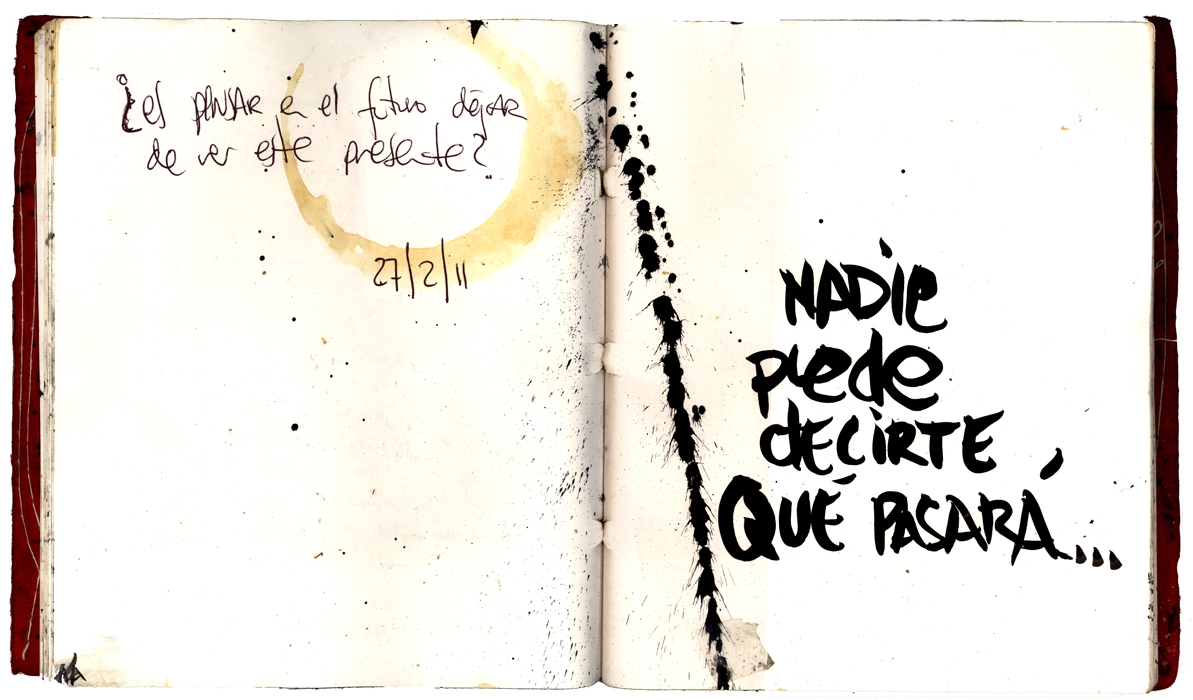 ¿es PENSAR en el futuro dejar
de ver este presente?
27/2/11
NADIE
puede
decirte
QUÉ PASARÁ...